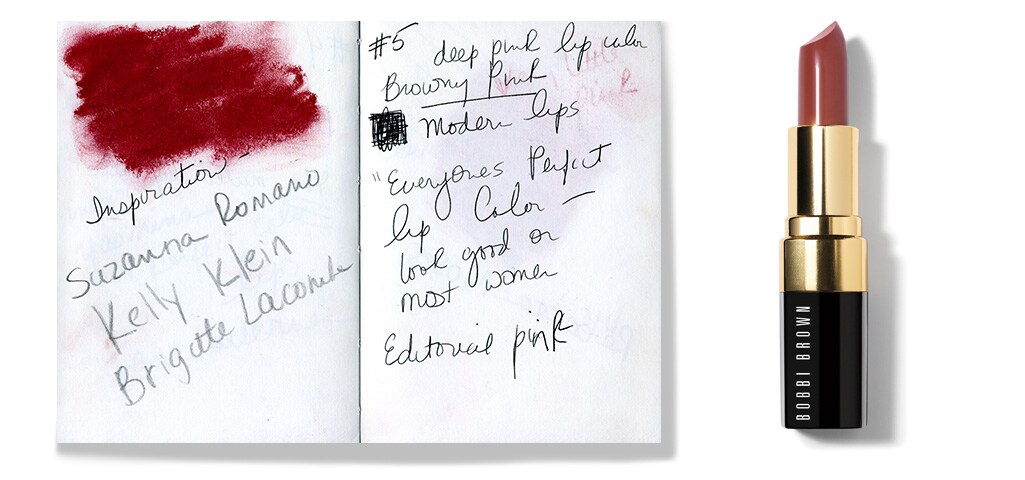 Inspiration -
Suzanna Romano
Kelly Klein
Brigitte Lacombe
#5 deep pink lip color
Browny Pink
Modern lips
"Everyones Perfect
lip Color —
look good on
most women
Editorial pink
BOBBI BROWN